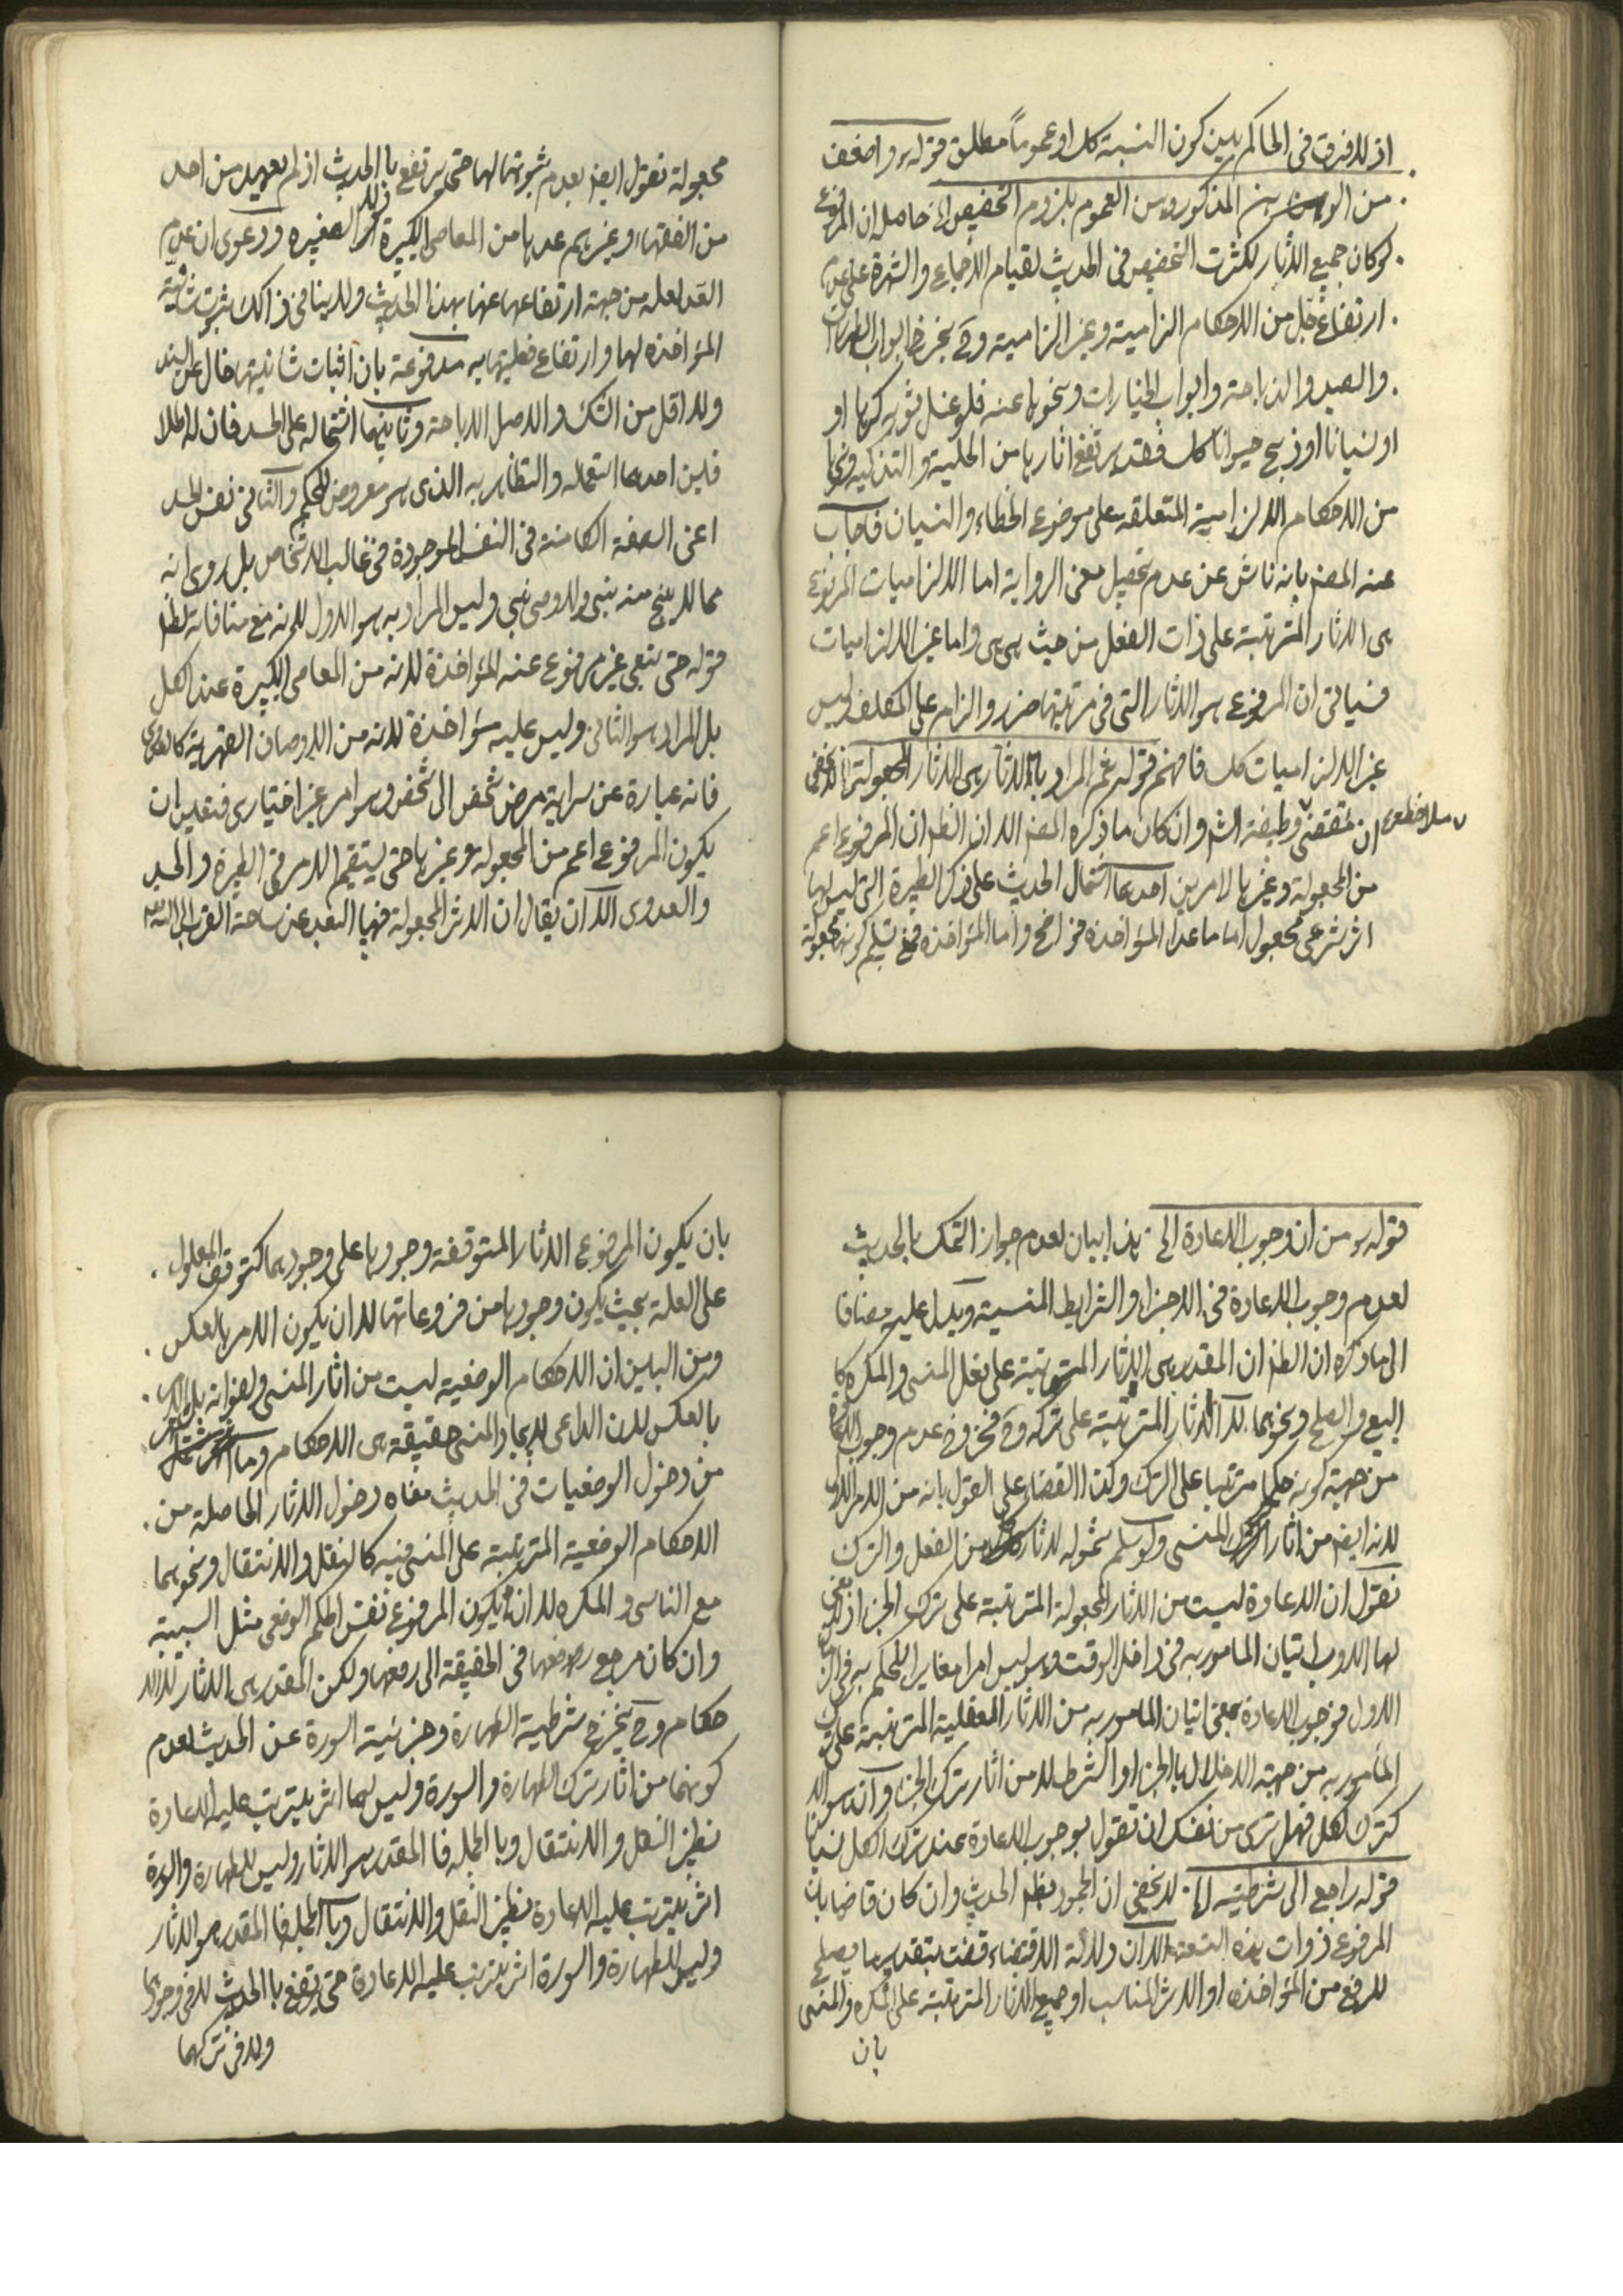 اذ لا فرق فى الحاكم بين كون النسبة كك او عموما مطلق قوله واضعف
من الوهن بين المذكورين العموم بلزوم التخصيص الخ حاصله ان المرفوع
لو كان جميع الاثار لكثرت التخصيص فى الحديث لقيام الاجماع والشهرة على عدم
ارتفاع جل من الاحكام الزامية وغير الزامية وح يخرج ابواب الطهارات
والصيد والذباحة وابواب الخيارات ونحوها عنه فلو غسل ثوبه كرها او
او نسيانا او ذبح حيوانا كك فقد يرتفع اثارها من الحلية والتذكيه ونحوها
من الاحكام الالزامية المتعلقه على موضوع الخطاء والنسيان فاجاب
عنه المصنف بانه ناش عن عدم تحصيل معنى الرواية اما الالزاميات المرفوع
هى الاثار المترتبة على ذات الفعل من حيث هى هى واما غير الالزاميات
فسياتى ان المرفوع هو الاثار التى فى مرتبتها ضرر والزام على المكلف وليس
غير الالزاميات كك فافهم قوله ثم المراد بالاثار هى الاثار المجعولة الخ لا يخفى
ان مقتضى وظيفة الشارع وان كان ما ذكره المصنف الا ان الظاهر ان المرفوع اعم
ملاحظة
من المجعولة وغيرها لامرين احدهما اشتمال الحديث على ذكر الطيرة التى ليس لها
اثر شرعى مجعول اما ما عدا المؤاخذه فواضح واما المؤاخذه فمع تسليم كونها مجعولة
مجعولة نقول ايضا بعدم ثبوتها لها حتى يرتفع بالحديث اذ لم يعهد من احد
من الفقهاء وغيرهم عدها من المعاصى الكبيرة او الصغيره ودعوى ان عدم
العد لعله من جهة ارتفاعها عنها بهذا الحديث ولا ينافى ذالك ثبوت شانية
المؤاخذه لها وارتفاع فعليتها به مدفوعة بان اثبات شانيتها خال عن السند
ولا اقل من الشك والاصل الاباحة وثانيهما اشتماله على الحسد فان له اطلا
قين احدهما استعماله والتظاهر به الذى هو معروض للحكم والثانى نفس الحسد
اعنى الصفة الكامنة فى النفس الموجودة فى غالب الاشخاص بل روى انه
مما لا ينج منه نبى ولا وصى نبى وليس المراد به هو الاول لانه مع منافاته لظاهر
قوله حتى يبقى غير مرفوع عنه المؤاخذة لانه من المعاصى الكبيرة عند الكل
بل المراد هو الثانى وليس عليه مؤاخذة لانه من الاوصاف القهرية كالعدوى
فانه عبارة عن سراية مرض شخص الى شخص وهو امر غير اختيارى فتعين ان
يكون المرفوع اعم من المجعوله وغيرها حتى يستقيم الامر فى الطيرة والحسد
والعدوى الا ان يقال ان الاثر المجعولة فيها البعد عن ساحة القرب الى الله
قوله هو من ان وجوب الاعادة الخ هذا بيان لعدم جواز التمسك بالحديث
لعدم وجوب الاعادة فى الاجزاء والشرايط المنسية ويدل عليه مضافا
الى ما ذكره ان الظاهر ان المقدر هى الاثار المترتبة على فعل المنسى والمكره كا
البيع والصلح ونحوهما لا الاثار المترتبة على تركه وح فخروج عدم وجوب الاعادة
من جهة كونه حكما مترتبا على الترك وكذا القضاء على القول بانه من الامر الاول
لانه ايضا من اثار الترك المنسى ولو سلم شموله لاثار كل من الفعل والترك
نقول ان الاعادة ليست من الاثار المجعولة المترتبة على ترك الجزء اذ لا معنى
لها الا وجوب اتيان المامور به فى داخل الوقت وهو ليس امرا مغايرا للحكم به فى الزمان
الاول فوجوب الاعادة بمعنى اتيان المامور به من الاثار العقلية المترتبة على ترك
المامور به من جهة الاخلال بالجزء او الشرط لا من اثار ترك الجزء والا
كترك الكل فهل ترى من نفسك ان تقول بوجوب الاعادة عند ترك الكل نسيانا
قوله راجع الى شرطية الخ لا يخفى ان الجمود بظاهر الحديث وان كان قاضيا بان
المرفوع ذوات هذه التسعة الا ان دلالة الاقتضاء قضت بتقدير ما يصلح
للرفع من المؤاخذه او الاثر المناسب او جميع الاثار المترتبة على المكره والمنسى
بان
بان يكون المرفوع الاثار المتوقفة وجودها على وجودهما كتوقف المعلول
على العلة بحيث يكون وجودها من فروعاتها لا ان يكون الامر بالعكس
ومن البين ان الاحكام الوضعيه ليست من اثار المنسى ولعنوانه بل الامر
بالعكس لان الداعى لايجاد المنسى حقيقة هى الاحكام وما
من دخول الوضعيات فى الحديث معناه دخول الاثار الحاصلة من
الاحكام الوضعية المترتبة على المنسى فيه كالنقل والانتقال ونحوهما
مع الناسى والمكره لا ان يكون المرفوع نفس الحكم الوضعى مثل السببية
وان كان مرجع رفعها فى الحقيقة الى رفعها ولكن المقدر هى الاثار لا الا
حكام وح يخرج شرطية الطهارة وجزئية السورة عن الحديث لعدم
كونهما من اثار ترك الطهارة والسورة وليس لهما اثر يترتب عليه الاعادة
نظير النقل والانتقال وبالجمله فا المقدر هو الاثار وليس للطهارة والسورة
اثر يترتب عليه الاعادة نظير النقل والانتقال وبا الجمله فا المقدر هو الاثار
وليس للطهارة والسورة اثر يترتب عليه الاعادة حتى يرتفع با الحديث لا فى وجودها
ولا فى تركهما